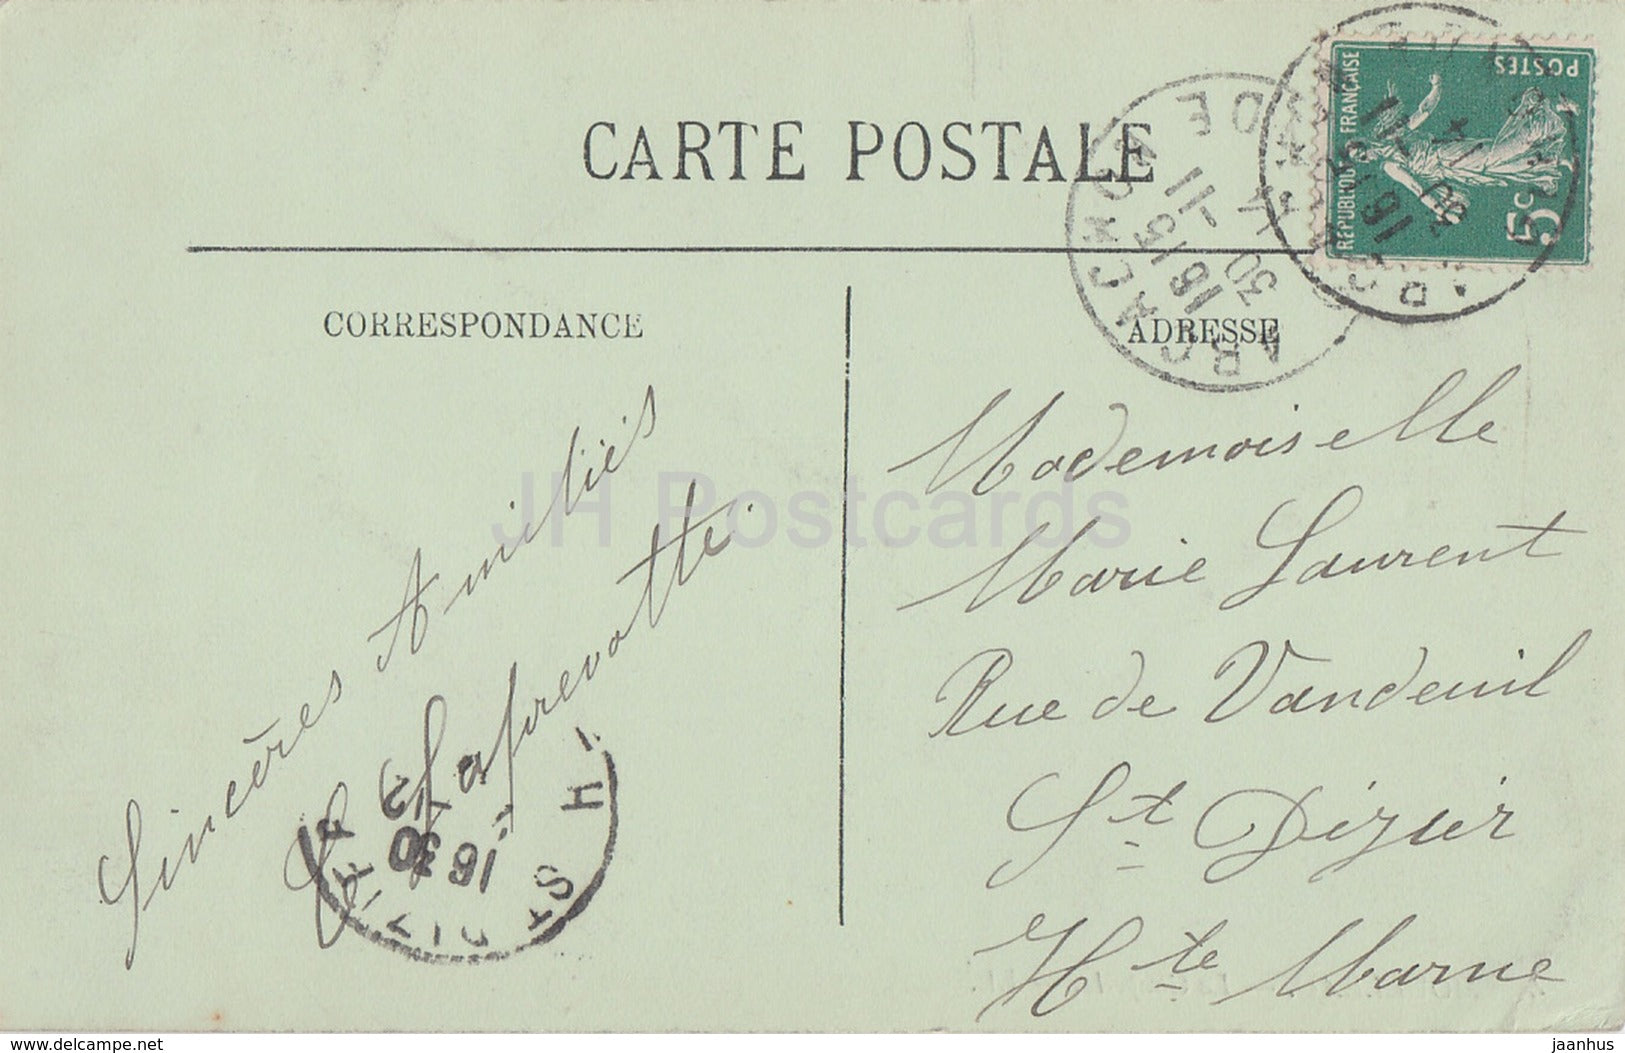 CARTE POSTALE
CORRESPONDANCE
ADRESSE
REPUBLIQUE FRANÇAISE
POSTES
5c
ARCACHON
GIRONDE
18 15
30 -11
11
Sincères Amitiés
Mademoiselle
Marie Laurent
Rue de Vandeuil
St Dizier
Hte Marne
ST DIZIER
16 30
12
JH Postcards
delcampe.net
jaanhus